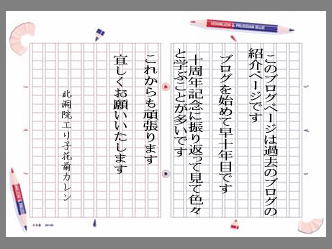 このブログページは過去のブログの
紹介ページです
ブログを始めて早十年目です
十周年記念に振り返って見て色々
と学ぶことが多いです
これからも頑張ります
宜しくお願いいたします
此洞院エリ子花菊カレン
VERMILION & PRUSSIAN BLUE